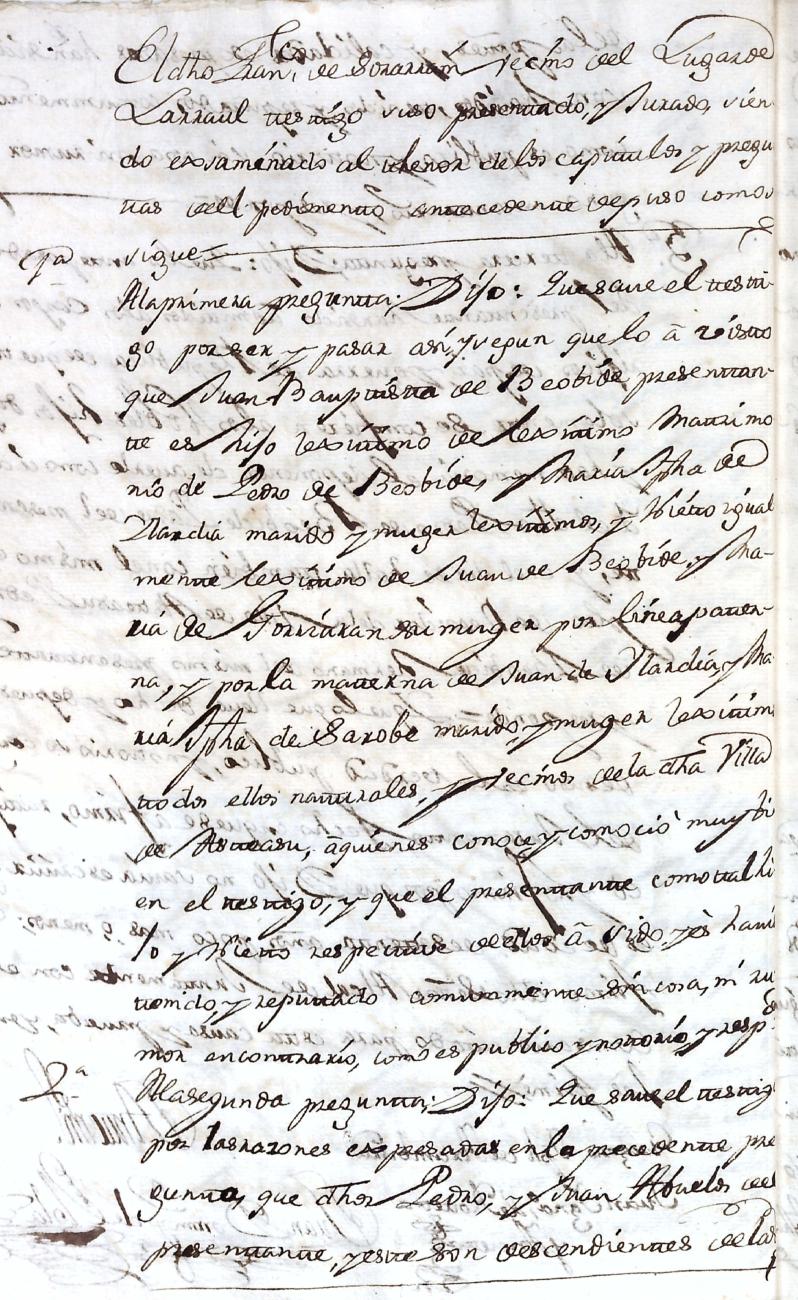 El dho Franco de Sorarrain vecino del Lugar de
Larraul testigo viso presentado, y Jurado, vien-
do exsaminado al thenor de los capitulos y pregu
tas dell pedimento antecedente depuso como
sigue
1a
Ala primera pregunta; Dijo: Que save el testi-
go por ser, y pasar asi, y segun que lo â visto
que Juan Baupttista de Beobide presentan-
te es hijo lexitimo de lexitimo Matrimo
nio de Pedro de Beobide, y Maria Jpha de
Ylardia marido y muger lexitimos, y Nieto igual
mente lexitimo de Juan de Beobide, y Ma-
ria de Gorriaran su muger por linea pater-
na, y por la materna de Juan de Ylardia, y Ma
ria Jpha de Sarobe marido, y muger lexitim
todos ellos naturales, y vecinos de la dha Villa
de Asteasu, a quienes conoce y conocio muy bi
en el testigo, y que el presentante como tal hi
jo y Nieto respective de ellos â sido, y es havi
tenido, y reputado comunmente sin cosa, ni ru
mor encontrario, como es publico y notorio, y respde
2a
Ala segunda pregunta; Dijo: Que save el testig
por las razones expresadas en la precedente pre
gunta, que dhos Pedro, y Juan Abuelos del
presentante, y este son descendientes de las